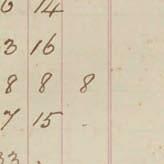 6 14
3 16
8 8 8
7 15 .
33 .